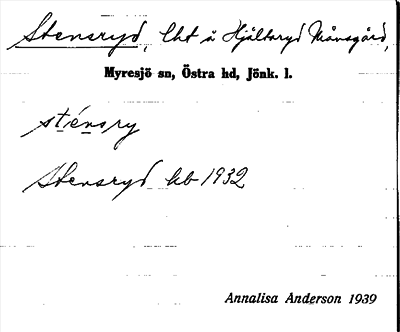 Stensryd, lht å Hjältaryd Månsgård,
Myresjö sn, Östra hd, Jönk. l.
sténsry
Stensryd hb 1932
Annalisa Anderson 1939